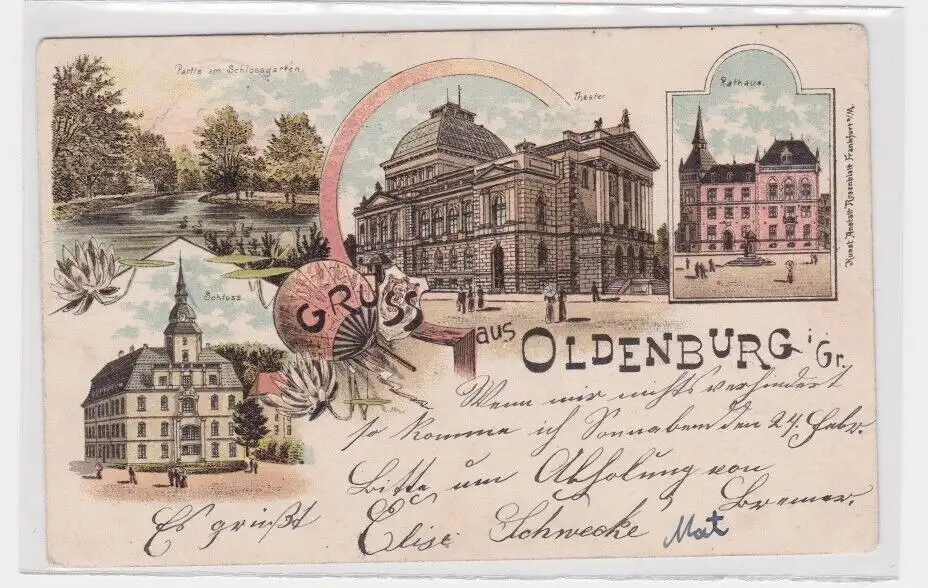 Partie am Schlossgarten
Theater
Rathaus.
Kunst Anstalt Rosenblatt Frankfurt a/M.
Schloss
GRUSS
aus OLDENBURG i Gr.
Wenn mir nichts verhindert
so komme ich Sonnabend den 24. Febr.
Bitte um Abholung von
Bremer.
Es grüßt Elise Schwecke